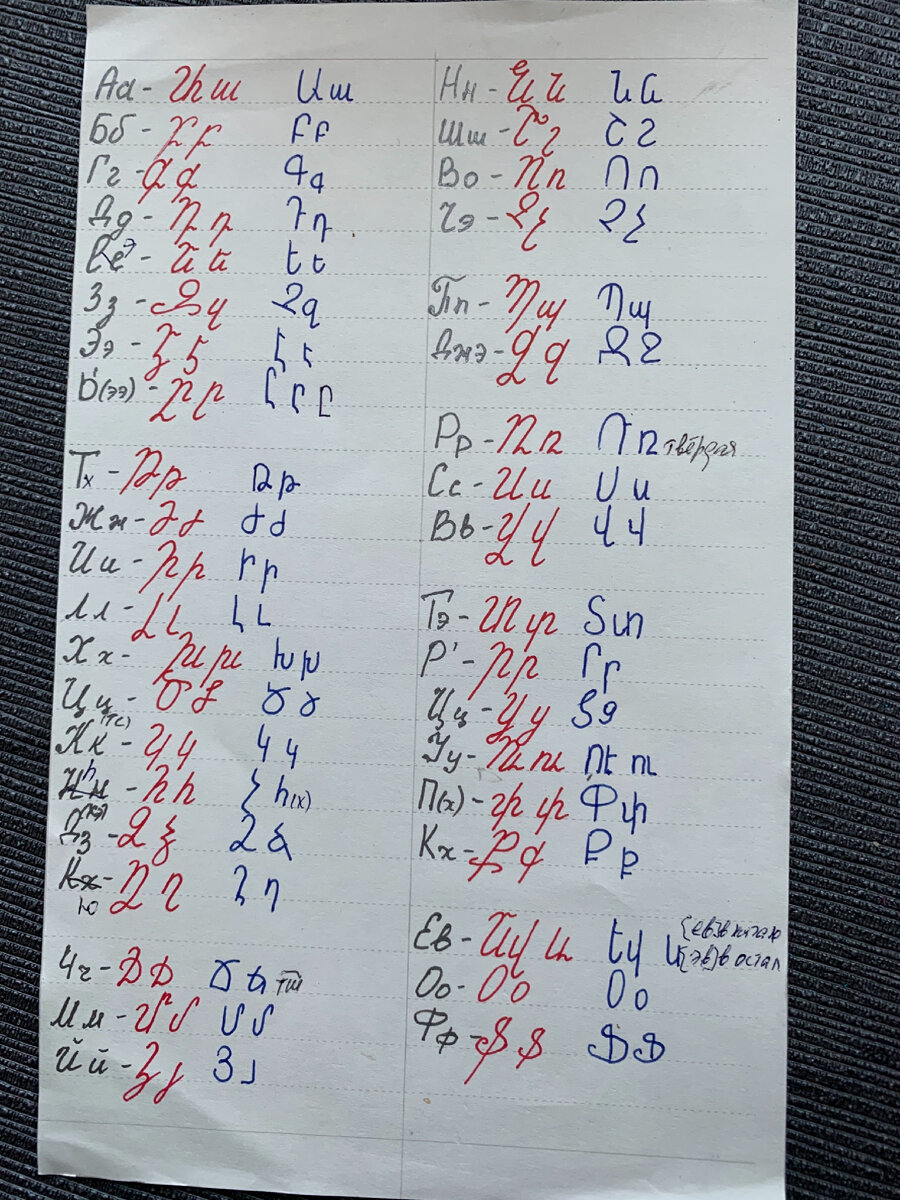 Аа - Ա ա Ա ա
Бб - Բ բ Բ բ
Гг - Գ գ Գ գ
Дд - Դ դ Դ դ
Ее э - Ե ե Ե ե
Зз - Զ զ Զ զ
Ээ - Է է Է է
Ы'(ээ) - Ը ը Ը ը
Тх - Թ թ Թ թ
Жж - Ժ ժ Ժ ժ
Ии - Ի ի Ի ի
Лл - Լ լ Լ լ
Хх - Խ խ Խ խ
Цц (тс) - Ծ ծ Ծ ծ
Кк - Կ կ Կ կ
h - Հ հ Հ հ (х)
Дз - Ձ ձ Ձ ձ
- Ղ ղ Ղ ղ
Чч - Ճ ճ Ճ ճ тш
Мм - Մ մ Մ մ
Йй - Յ յ Յ յ
Нн - Ն ն Ն ն
Шш - Շ շ Շ շ
Во - Ո ո Ո ո
Чэ - Չ չ Չ չ
Пп - Պ պ Պ պ
Джэ - Ջ ջ Ջ ջ
Рр - Ռ ռ Ռ ռ твёрдая
Сс - Ս ս Ս ս
Вв - Վ վ Վ վ
Тэ - Տ տ Տ տ
Р' - Ր ր Ր ր
Цц - Ց ց Ց ց
Уу - Ու ու Ու ու
П(х) - Փ փ Փ փ
Кх - Ք ք Ք ք
Ев - Եվ և Եվ և [ев] в начале
[эв] в остал
Оо - Օ օ Օ օ
Фф - Ֆ ֆ Ֆ ֆ